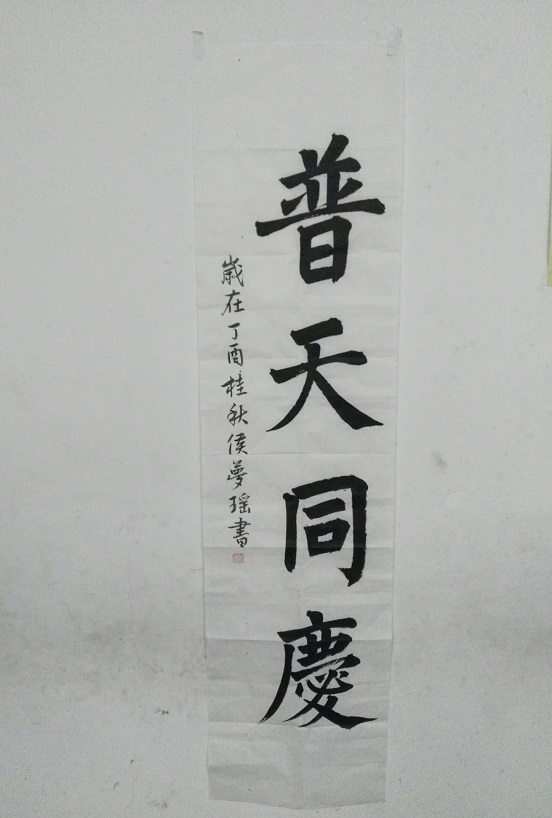 普天同慶
歲在丁酉桂秋侯夢瑶書